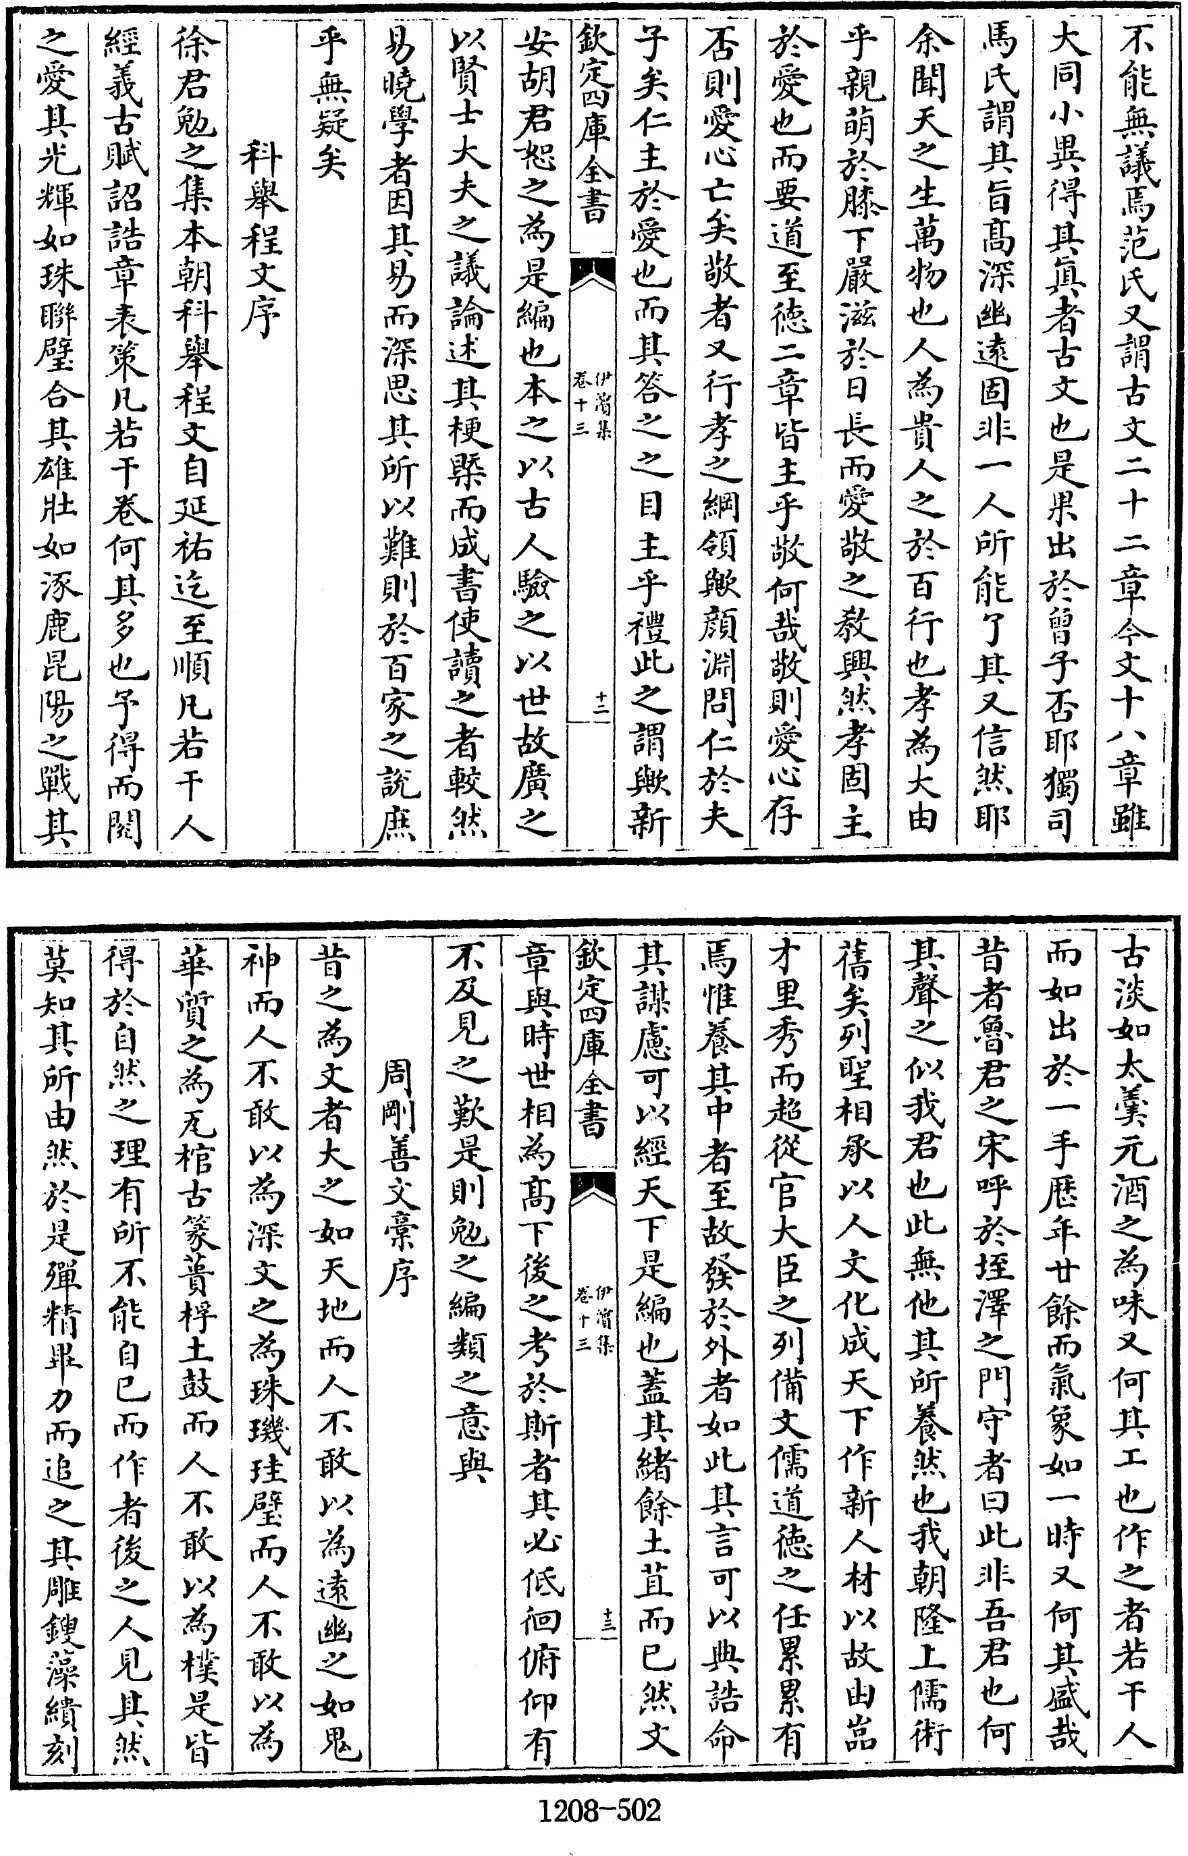 不能無議焉范氏又謂古文二十二章今文十八章雖
大同小異得其真者古文也是果出於曾子否耶獨司
馬氏謂其旨高深幽遠固非一人所能了其又信然耶
余聞天之生萬物也人為貴人之於百行也孝為大由
乎親萌於膝下嚴滋於日長而愛敬之教興然孝固主
於愛也而要道至德二章皆主乎敬何哉敬則愛心存
否則愛心亡矣敬者又行孝之綱領歟顔淵問仁於夫
子矣仁主於愛也而其答之之目主乎禮此之謂歟新
欽定四庫全書
伊濱集
卷十三
十二
安胡君恕之為是編也本之以古人驗之以世故廣之
以賢士大夫之議論述其梗槩而成書使讀之者較然
易曉學者因其易而深思其所以難則於百家之說庶
乎無疑矣
科舉程文序
徐君勉之集本朝科舉程文自延祐迄至順凡若干人
經義古賦詔誥章表策凡若干卷何其多也予得而閱
之愛其光輝如珠聯璧合其雄壯如涿鹿昆陽之戰其
古淡如太羹元酒之為味又何其工也作之者若干人
而如出於一手歴年廿餘而氣象如一時又何其盛哉
昔者魯君之宋呼於垤澤之門守者曰此非吾君也何
其聲之似我君也此無他其所養然也我朝隆上儒術
舊矣列聖相承以人文化成天下作新人材以故由嵓
才里秀而超從官大臣之列備文儒道德之任累累有
焉惟養其中者至故發於外者如此其言可以典誥命
其謀慮可以經天下是編也蓋其緒餘土苴而已然文
欽定四庫全書
伊濱集
卷十三
十三
章與時世相為高下後之考於斯者其必低徊俯仰有
不及見之歎是則勉之編類之意與
周剛善文稾序
昔之為文者大之如天地而人不敢以為遠幽之如鬼
神而人不敢以為深文之為珠璣珪璧而人不敢以為
華質之為瓦棺古篆蕢桴土鼓而人不敢以為樸是皆
得於自然之理有所不能自已而作者後之人見其然
莫知其所由然於是殫精畢力而追之其雕鎪藻繢刻
1208-502